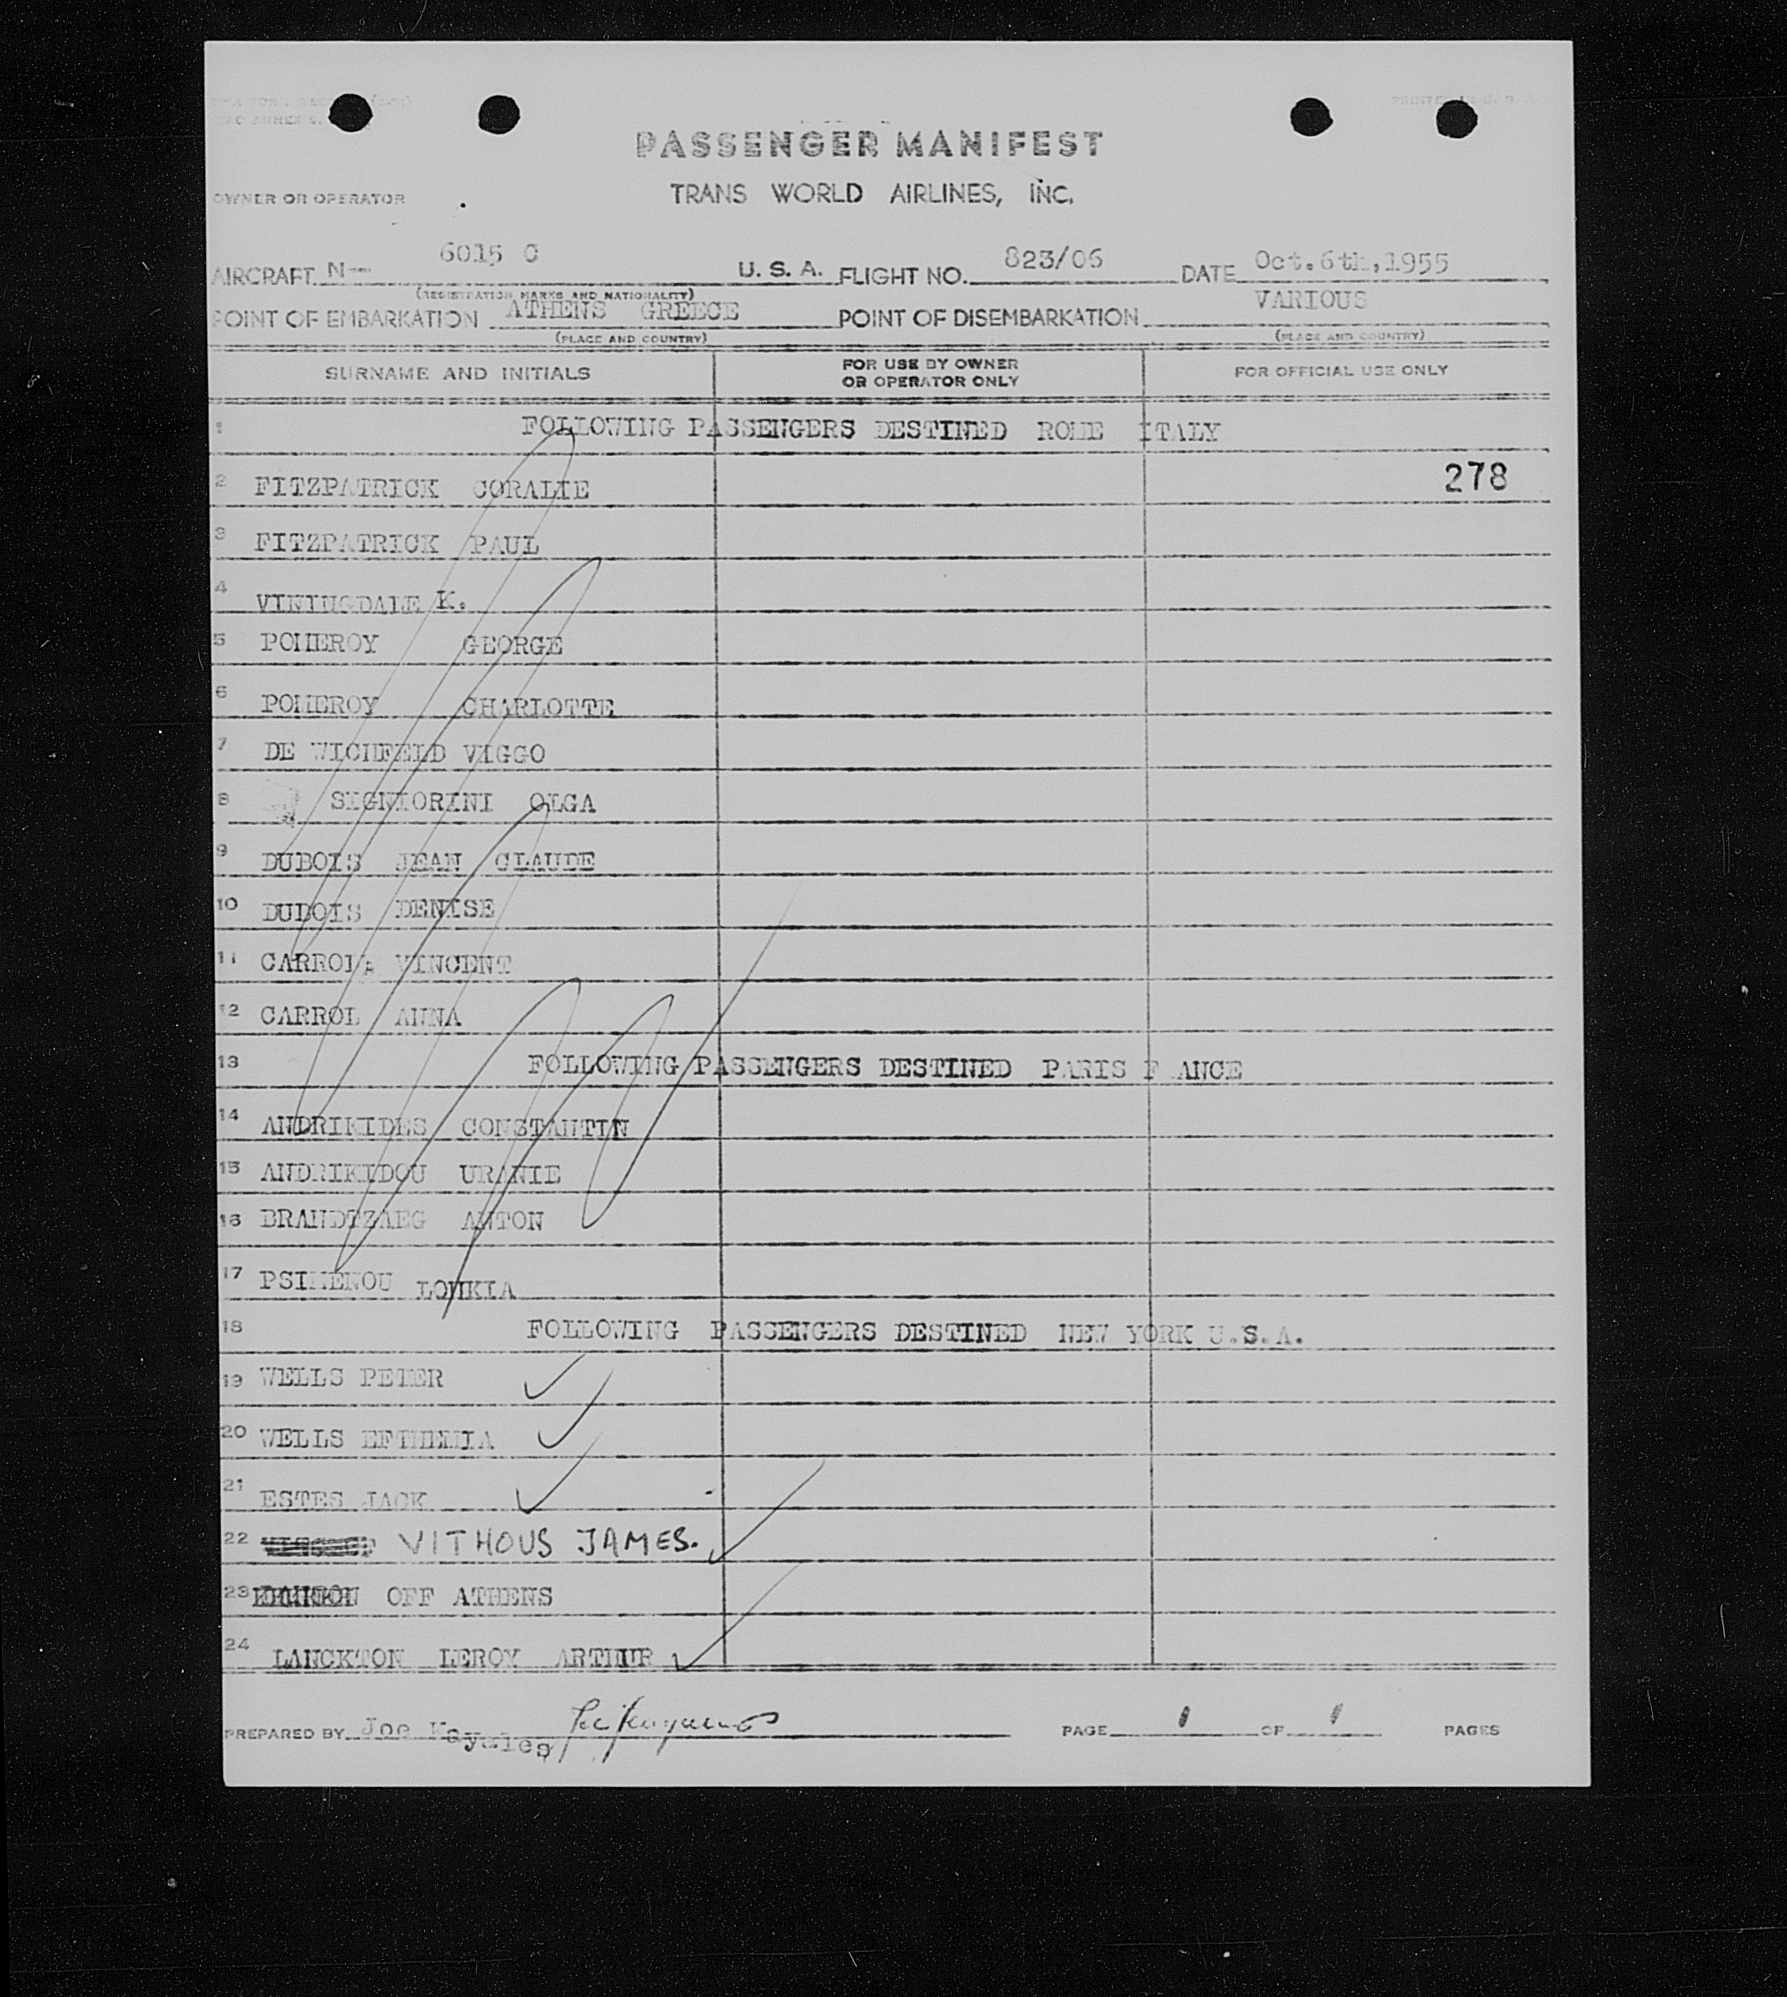 PASSENGER MANIFEST
TRANS WORLD AIRLINES, INC.
OWNER OR OPERATOR
AIRCRAFT N-- 6015 C U. S. A. FLIGHT NO. 823/06 DATE Oct.6th,1955
(REGISTRATION MARKS AND NATIONALITY)
POINT OF EMBARKATION ATHENS GREECE POINT OF DISEMBARKATION VARIOUS
(PLACE AND COUNTRY) (PLACE AND COUNTRY)
SURNAME AND INITIALS FOR USE BY OWNER OR OPERATOR ONLY FOR OFFICIAL USE ONLY
1 FOLLOWING PASSENGERS DESTINED ROME ITALY
2 FITZPATRICK CORALIE 278
3 FITZPATRICK PAUL
4 VININGDALE K.
5 POMEROY GEORGE
6 POMEROY CHARLOTTE
7 DE WICHFELD VIGGO
8 SIGNIORINI OLGA
9 DUBOIS JEAN CLAUDE
10 DUBOIS DENISE
11 CARROL VINCENT
12 CARROL ANNA
13 FOLLOWING PASSENGERS DESTINED PARIS F ANCE
14 ANDRIKIDES CONSTANTIN
15 ANDRIKIDOU URANIE
16 BRANDTZAEG ANTON
17 PSIMENOU LOUKIA
18 FOLLOWING PASSENGERS DESTINED NEW YORK U.S.A.
19 WELLS PETER
20 WELLS EFTHEMIA
21 ESTES JACK
22 VITHOUS JAMES.
23 OFF ATHENS
24 LANCKTON LEROY ARTHUR
PREPARED BY Joe PAGE 1 OF 1 PAGES